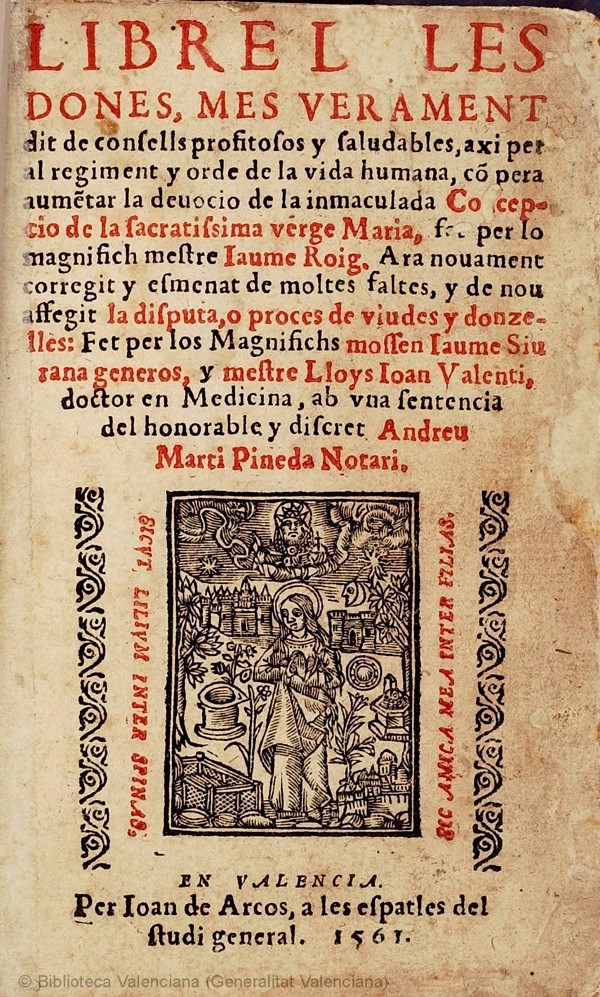 LIBRE L LES
DONES, MES VERAMENT
dit de conſells profitoſos y ſaludables, axi per
al regiment y orde de la vida humana, cõ pera
aumẽtar la deuocio de la inmaculada Co cep-
cio de la ſacratiſsima vérge Maria, per lo
magnifich meſtre Iaume Roig. Ara nouament
corregit y eſmenat de moltes faltes, y de nou
affegit la diſputa, o proces de viudes y donze-
lles: Fet per los Magnifichs moſſen Iaume Siu
rana generos, y meſtre Lloys Ioan Valenti,
doctor en Medicina, ab vna ſentencia
del honorable y diſcret Andreu
Marti Pineda Notari.
SICVT LILIVM INTER SPINAS,
SIC AMICA MEA INTER FILIAS.
EN VALENCIA.
Per Ioan de Arcos, a les eſpatles del
ſtudi general. 1561.
© Biblioteca Valenciana (Generalitat Valenciana)